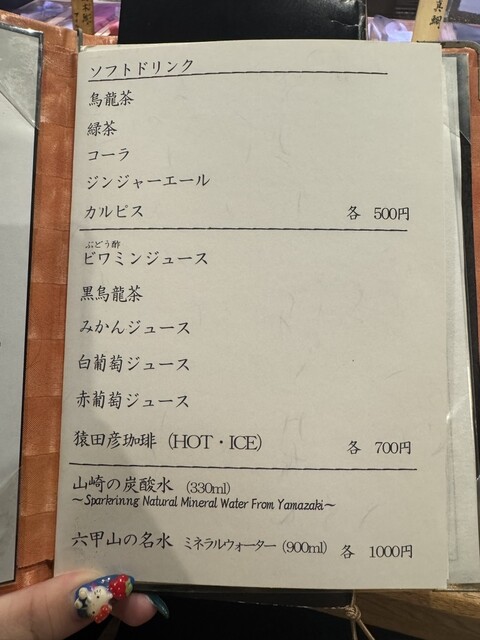 ソフトドリンク
烏龍茶
緑茶
コーラ
ジンジャーエール
カルピス 各 500円
ぶどう酢
ビワミンジュース
黒烏龍茶
みかんジュース
白葡萄ジュース
赤葡萄ジュース
猿田彦珈琲（HOT・ICE） 各 700円
山崎の炭酸水（330ml）
～Sparkrinng Natural Mineral Water From Yamazaki～
六甲山の名水 ミネラルウォーター（900ml） 各 1000円